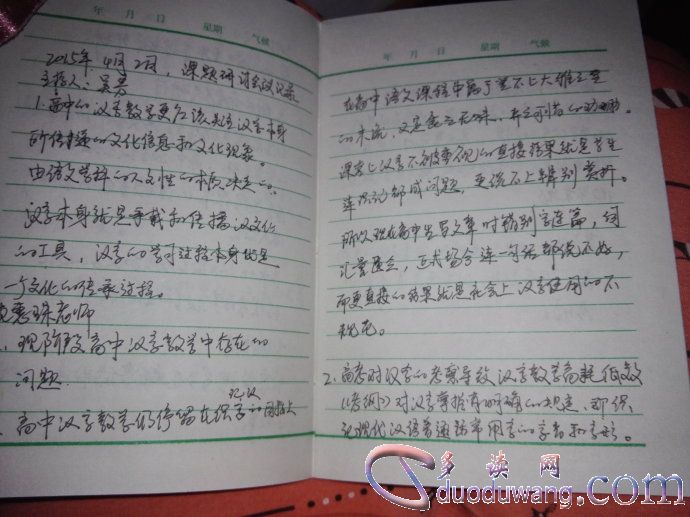 年 月 日 星期 气候
2015年 4月2日，课题研讨会议记录
主持人：吴芳
1.高中的汉字教学更应该关注汉字本身
所传递的文化信息和文化现象。
由语文学科的人文性的本质决定的。
汉字本身就是承载和传播汉文化
的工具，汉字的学习过程本身就是
一个文化的传承过程。
惠珠老师
、现阶段高中汉字教学中存在的
问题
高中汉字教学仍停留在识字
记汉
年 月 日 星期 气候
在高中语文课程中属于登不上大雅之堂
的末流，又定食之无味、弃之可惜的
课堂上汉字不被重视的直接结果就是学生
连识记都成问题，更谈不上辨别赏析。
所以现在高中生写文章时错别字连篇，词
汇量匮乏，正式场合连一句话都说不好，
而更直接的结果就是社会上汉字使用的不
规范。
2.高考对汉字的考察导致汉字教学高耗低效
《考纲》对汉字掌握有明确的规定，即识
记现代汉语普通话常用字的字音和字形。
多读网
duoduwang.com